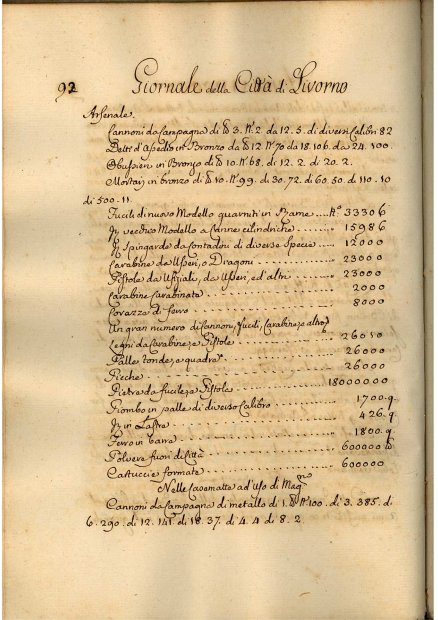 92 Giornale della Città di Livorno
Arsenale.
Cannoni da Campagna di lb 3. N.º 2 da 12. 5. di diversi Calibri 82
Detti d'Assedio in Bronzo da lb 12 N.º 70 da 18. 106. da 24. 100.
Obussieri in Bronzo di lb 10. N.º 68. di 12. 2. di 20. 2.
Mortari in bronzo di lb 10. N.º 99. di 30. 72. di 60. 50. di 110. 10
di 500. 11.
Fucili di nuovo Modello guarniti in Rame .... N.º 33306
In vecchio Modello a Canne cilindriche ........ 15986
In Spingarde da Contadini di diverse Specie .... 12000
Carabine da Usseri, o Dragoni ........ 23000
Pistole da Uffiziali, da Usseri, ed'altri ........ 23000
Carabine Carabinate ........ 2000
Corazze di ferro ........ 8000
Un gran numero di Cannoni, fucili, Carabine, e altro
Legni da Carabine, e Pistole ........ 26050
Palle tonde, e quadre ........ 26000
Picche ........ 26000
Pietre da fucile, e Pistole ........ 18000000
Piombo in palle di diverso Calibro ........ 1700. q.
In in Lastre ........ 426. q.
Ferro in barre ........ 1800. q.
Polvere fuori di Città ........ 600000 lb
Cartuccie formate ........ 600000
Nelle Casematte ad'uso di Mag.ne
Cannoni da Campagna di metallo di 1. lb N.º 100. di 3. 385. di
6. 290. di 12. 141. di 18. 37. di 4. 4 di 8. 2.